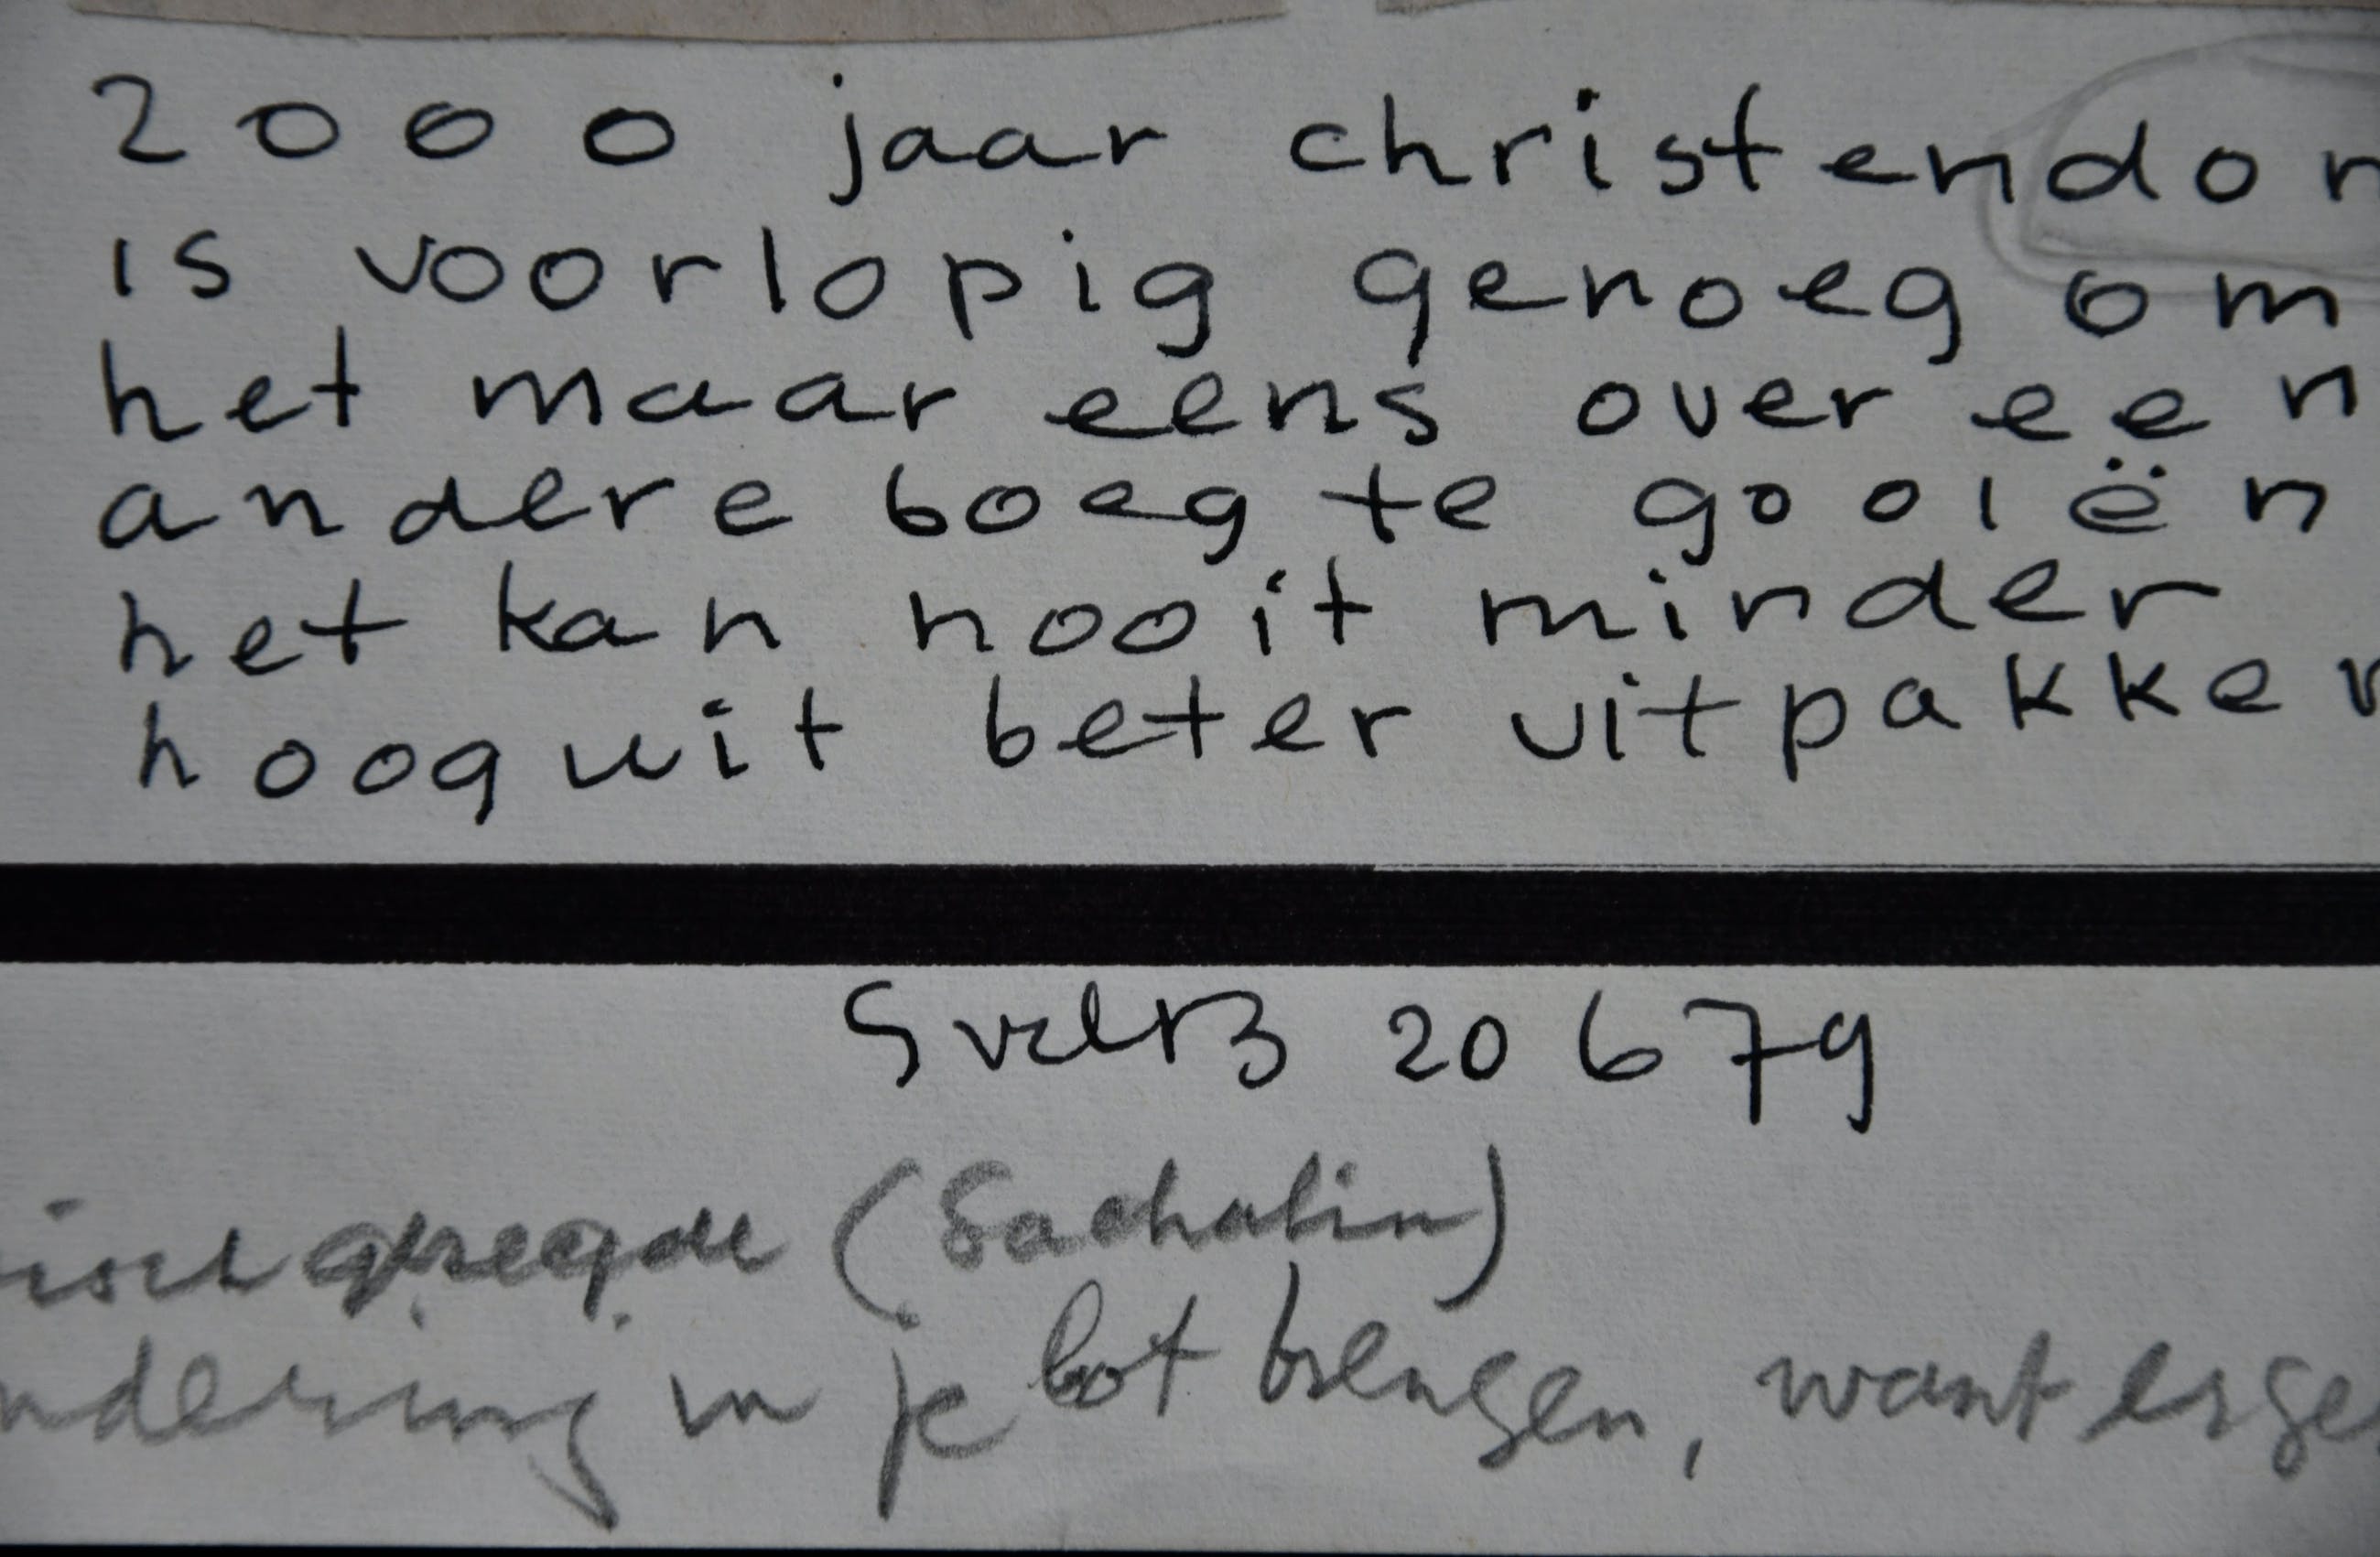 2000 jaar christendom
is voorlopig genoeg om
het maar eens over een
andere boeg te gooiën
het kan nooit minder
hooguit beter uitpakken
20 6 79
(Sachalin)
ndering in je bot brengen, want erge